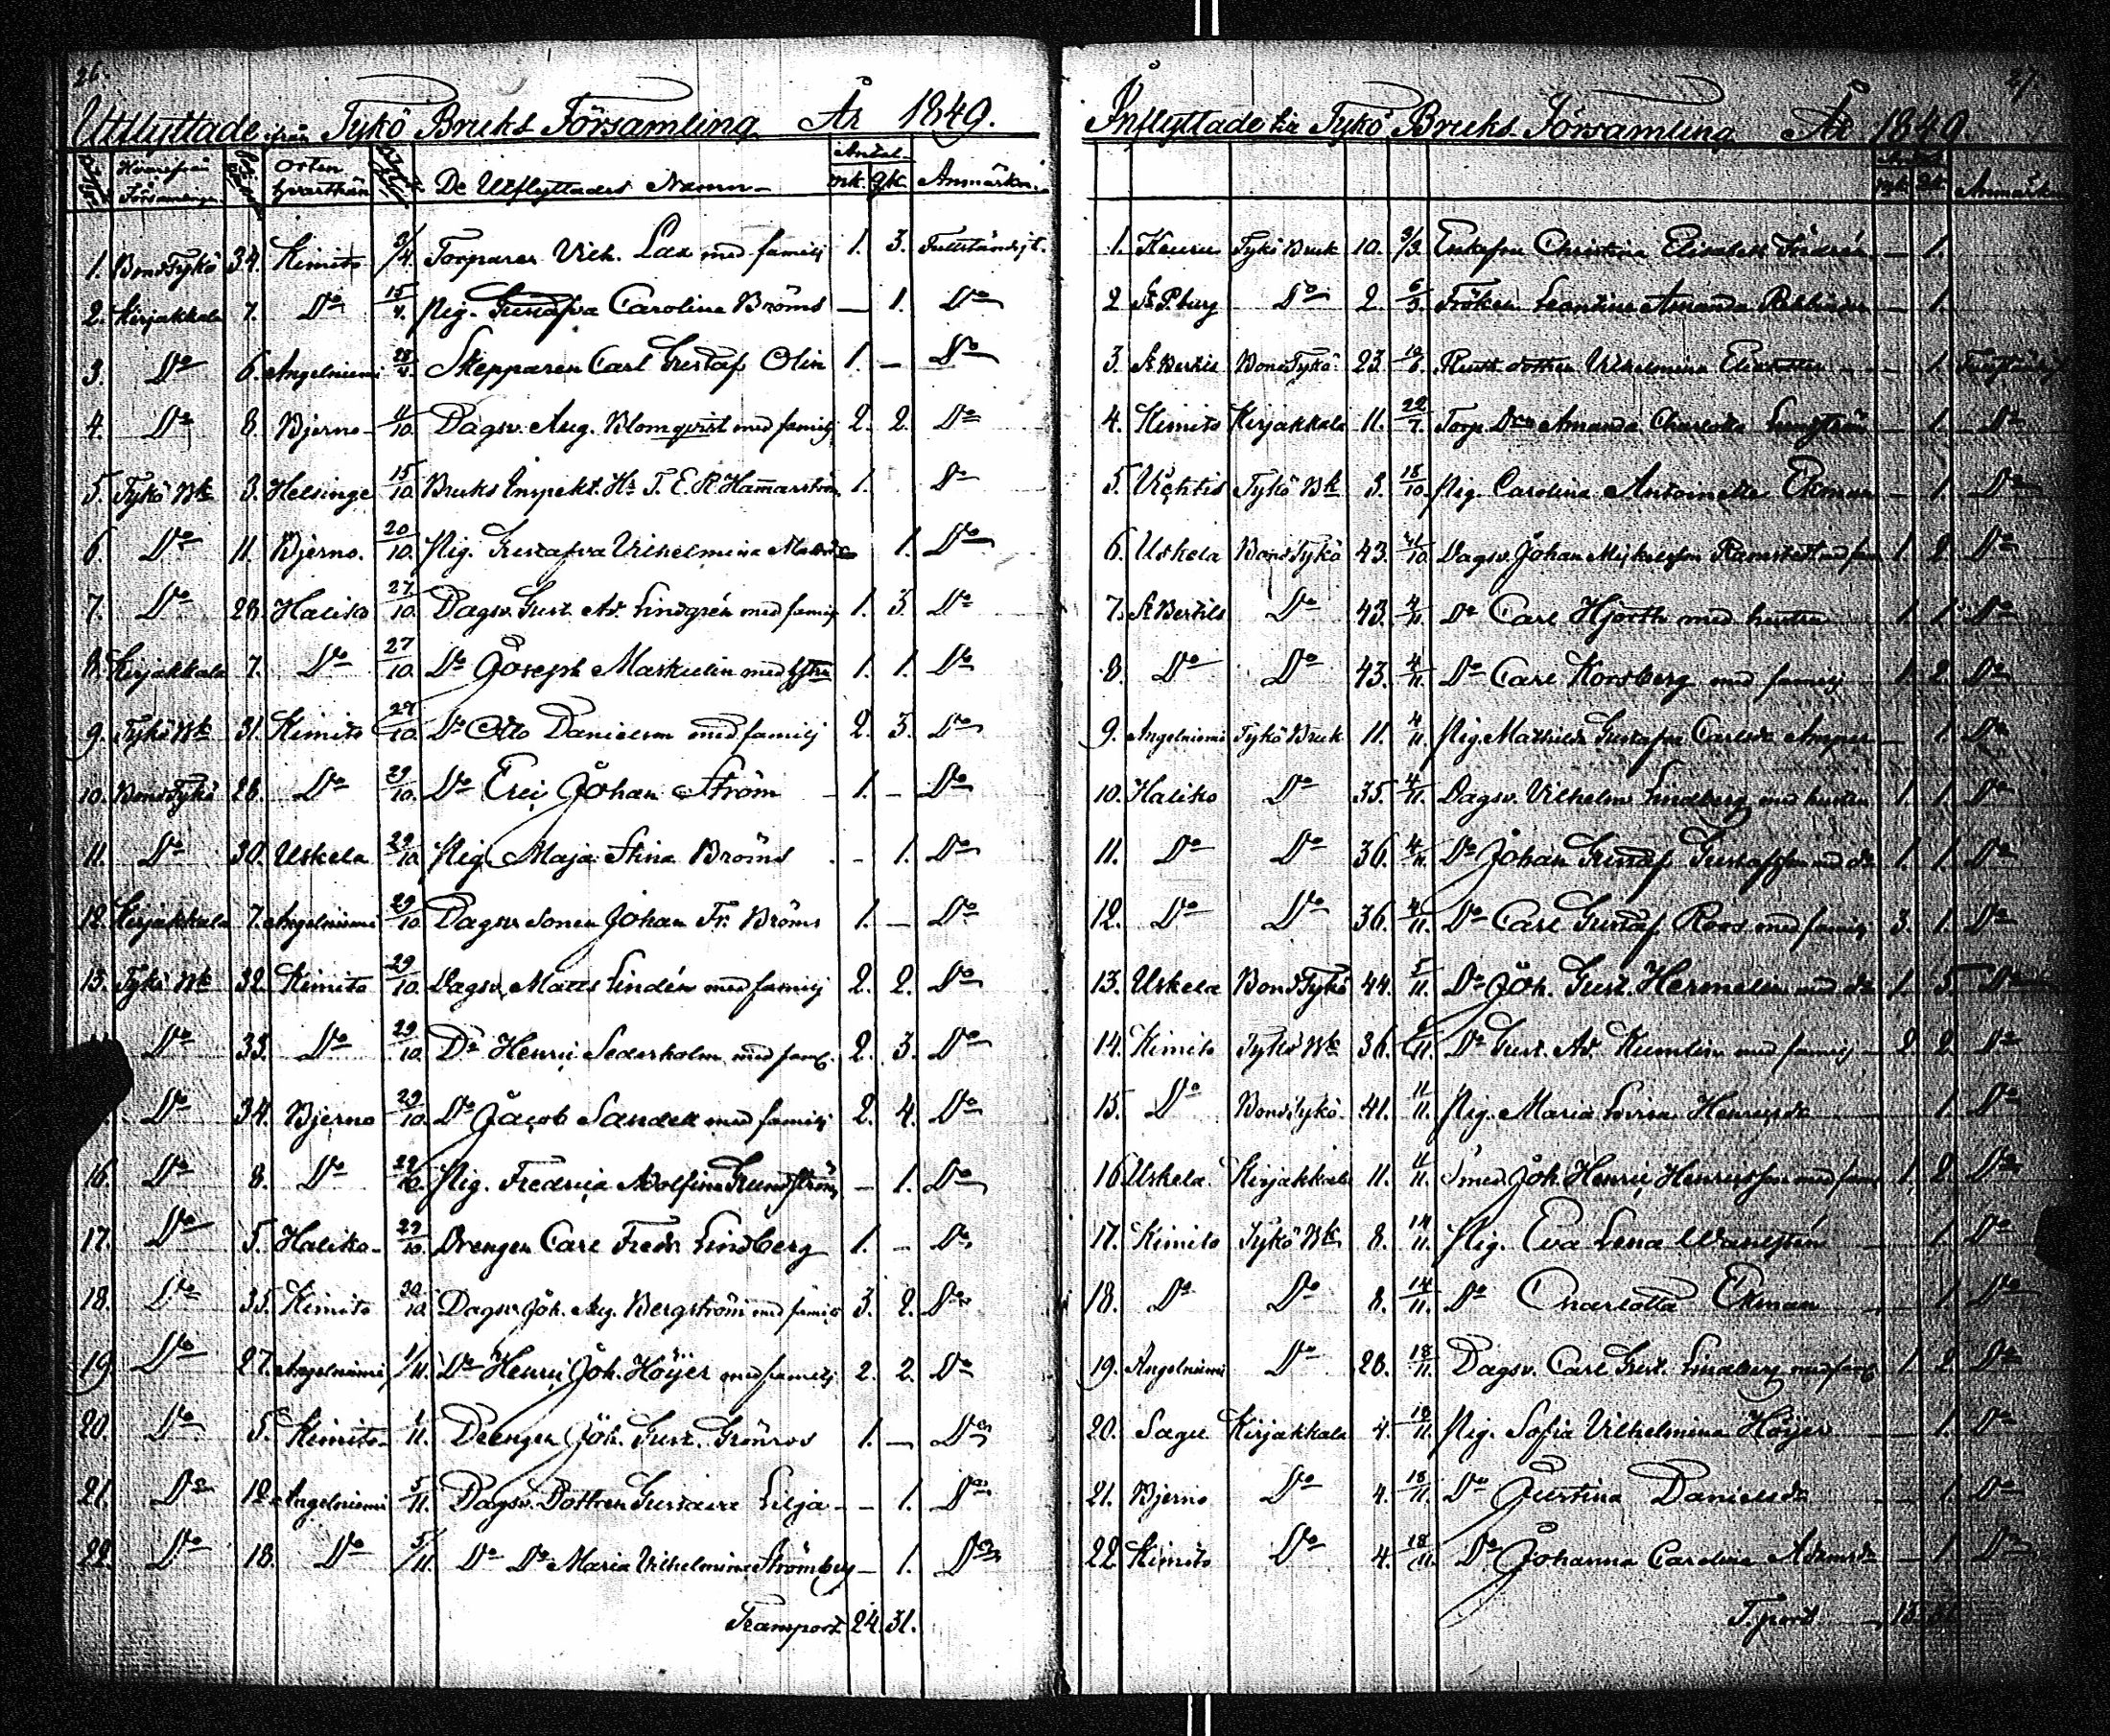 26.
Utflyttade ifrån Tykö Bruks Församling År 1849.
Hvarifrån Församlingen Orten hvarthän De Utflyttades Namn Antal mk. qk. Anmärkn.
1. BondTykö 34. Kimito 3/4. Torparen Vilh. Lax med familj 1. 3. Fullständigt.
2. Kirjakkala 7. Do 15/4. Pig. Gustafva Carolina Bröms — 1. Do
3. Do 6. Angelniemi Skepparen Carl Gustaf Olin 1. — Do
4. Do 8. Bjerno /10. Dagsv. Aug. Blomqvist med familj 2. 2. Do
5. Tykö Bk 3. Helsinge 15/10. Bruks Inspekt. Hr T. E. R. Hammarström 1. Do
6. Do 11. Bjerno. 20/10. Pig. Gustafva Vilhelmina 1. Do
7. Do 28. Haliko 27/10. Dagsv. Gust. Ad. Lindgrén med familj 1. 3. Do
8. Kirjakkala 7. Do 27/10. Do Joseph Maskulin med hstru 1. 1. Do
9. Tykö Bk 31. Kimito 27/10. Do Otto Danielson med familj 2. 3. Do
10. BondTykö 28. Do 29/10. Do Eric Johan Ström 1. — Do
11. Do 30. Uskela 29/10. Pig. Maja Stina Bröms — 1. Do
12. Kirjakkala 7. Angelniemi 29/10. Dagsv. Sonen Johan Fr. Bröms 1. — Do
13. Tykö Bk 32. Kimito 29/10. Dagsv. Matts Lindén med familj 2. 2. Do
Do 33. Do 29/10. Do Henric Sederholm med fam. 2. 3. Do
Do 34. Bjerno 29/10. Do Jacob Sandell med familj 2. 4. Do
16. Do 8. Do 29/10. Pig. Fredrica Adolfina Grundström — 1. Do
17. Do 5. Haliko 29/10. Drengen Carl Fredr. Lindberg 1. — Do
18. Do 35. Kimito 30/10. Dagsv. Joh. Aug. Bergström med familj 3. 2. Do
19. Do 27. Angelniemi 1/11. Do Henric Joh. Höijer med familj 2. 2. Do
20. Do 5. Kimito 1/11. Drengen Joh. Gust. Grönros 1. — Do
21. Do 12. Angelniemi 5/11. Dagsv. Dottren Gustava Lilja — 1. Do
22. Do 13. Do 5/11. Do Do Maria Vilhelmina Strömberg — 1. Do
Transport 24. 31.
27.
Inflyttade till Tykö Bruks Församling År 1849.
Antal mk. qk. Anmärkn
1. Keuru Tykö Bruk 10. 3/3. Enkefru Christina Elisabeth — 1.
2. St. P.burg Do 2. 6/3. Fröken Leontine Amanda Rehbinder — 1.
3. St. Bertils BondTykö 23. Rusth. dottren Vilhelmina — 1. Fullständigt
4. Kimito Kirjakkala 11. 22/7. Torp. Dra Amanda Charlotta — 1. Do
5. Vichtis Tykö Bk 3. 18/10. Pig. Carolina Antoinette Ekman — 1. Do
6. Uskela BondTykö 43. /10. Dagsv. Johan Mickelsson Ramstedt med fam 1. 2. Do
7. St. Bertils Do 43. 4/11. Do Carl Hjorth med hustru 1. 1. Do
8. Do Do 43. 4/11. Do Carl Korsberg med familj 1. 2. Do
9. Angelniemi Tykö Bruk 11. 4/11. Pig. Mathilda Gustafva Carlsdr — 1. Do
10. Haliko Do 35. 4/11. Dagsv. Vilhelm Lindberg med hustru 1. 1. Do
11. Do Do 36. 4/11. Do Johan Gustaf Gustafsson med do 1. 1. Do
12. Do Do 36. 4/11. Do Carl Gustaf Roos med familj 3. 1. Do
13. Uskela BondTykö 44. 5/11. Do Joh. Gust. Hermelin med do 1. 5. Do
14. Kimito Tykö Bk 36. /11. Do Gust. Ad. Kumlin med familj 2. 2. Do
15. Do BondTykö 41. 11/11. Pig. Maria Lovisa Henricsdr — 1. Do
16. Uskela Kirjakkala 11. 11/11. Smed Joh. Henric Henricsson med fam 1. 2. Do
17. Kimito Tykö Bk 8. 14/11. Pig. Eva Lena — 1. Do
18. Do Do 8. 14/11. Do Charlotta Ekman — 1. Do
19. Angelniemi Do 28. 18/11. Dagsv. Carl Gust. Lindberg med fam 1. 2. Do
20. Sagu Kirjakkala 4. 18/11. Pig. Sofia Vilhelmina Höijer — 1. Do
21. Bjerno Do 4. 18/11. Do Justina Danielsdr — 1. Do
22. Kimito Do 4. 18/11. Do Johanna Carolina Adamsdr — 1. Do
T.port 13. 31